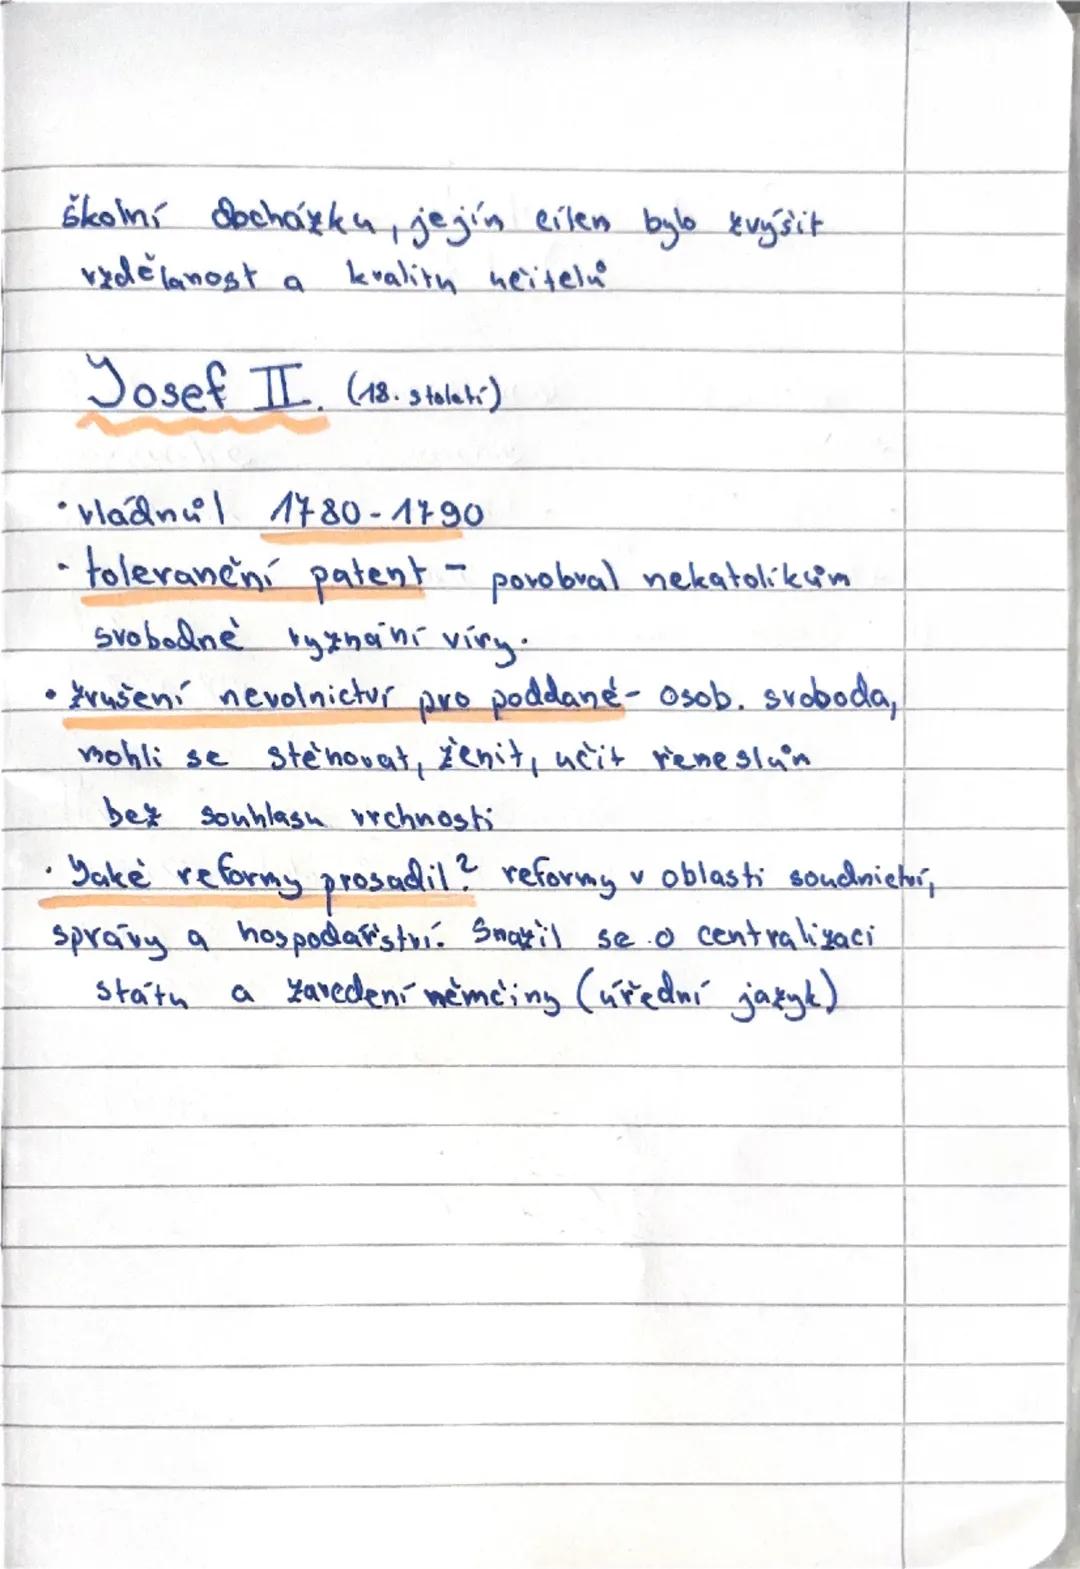 školní docházku, jejím cílem bylo zvýšit
vzdělanost a kvalitu učitelů
Josef II. (18. století)
• vládnůl 1780-1790
• toleranční patent - povobval nekatolíkům
svobodné vyznání víry.
• zrušení nevolnictví pro poddané - osob. svoboda,
mohli se stěhovat, ženit, učit řemeslům
bez souhlasu vrchnosti
• Jaké reformy prosadil? reformy v oblasti soudnictví,
správy a hospodářství. Snažil se o centralizaci
státu a zavedení němčiny (úřední jazyk)